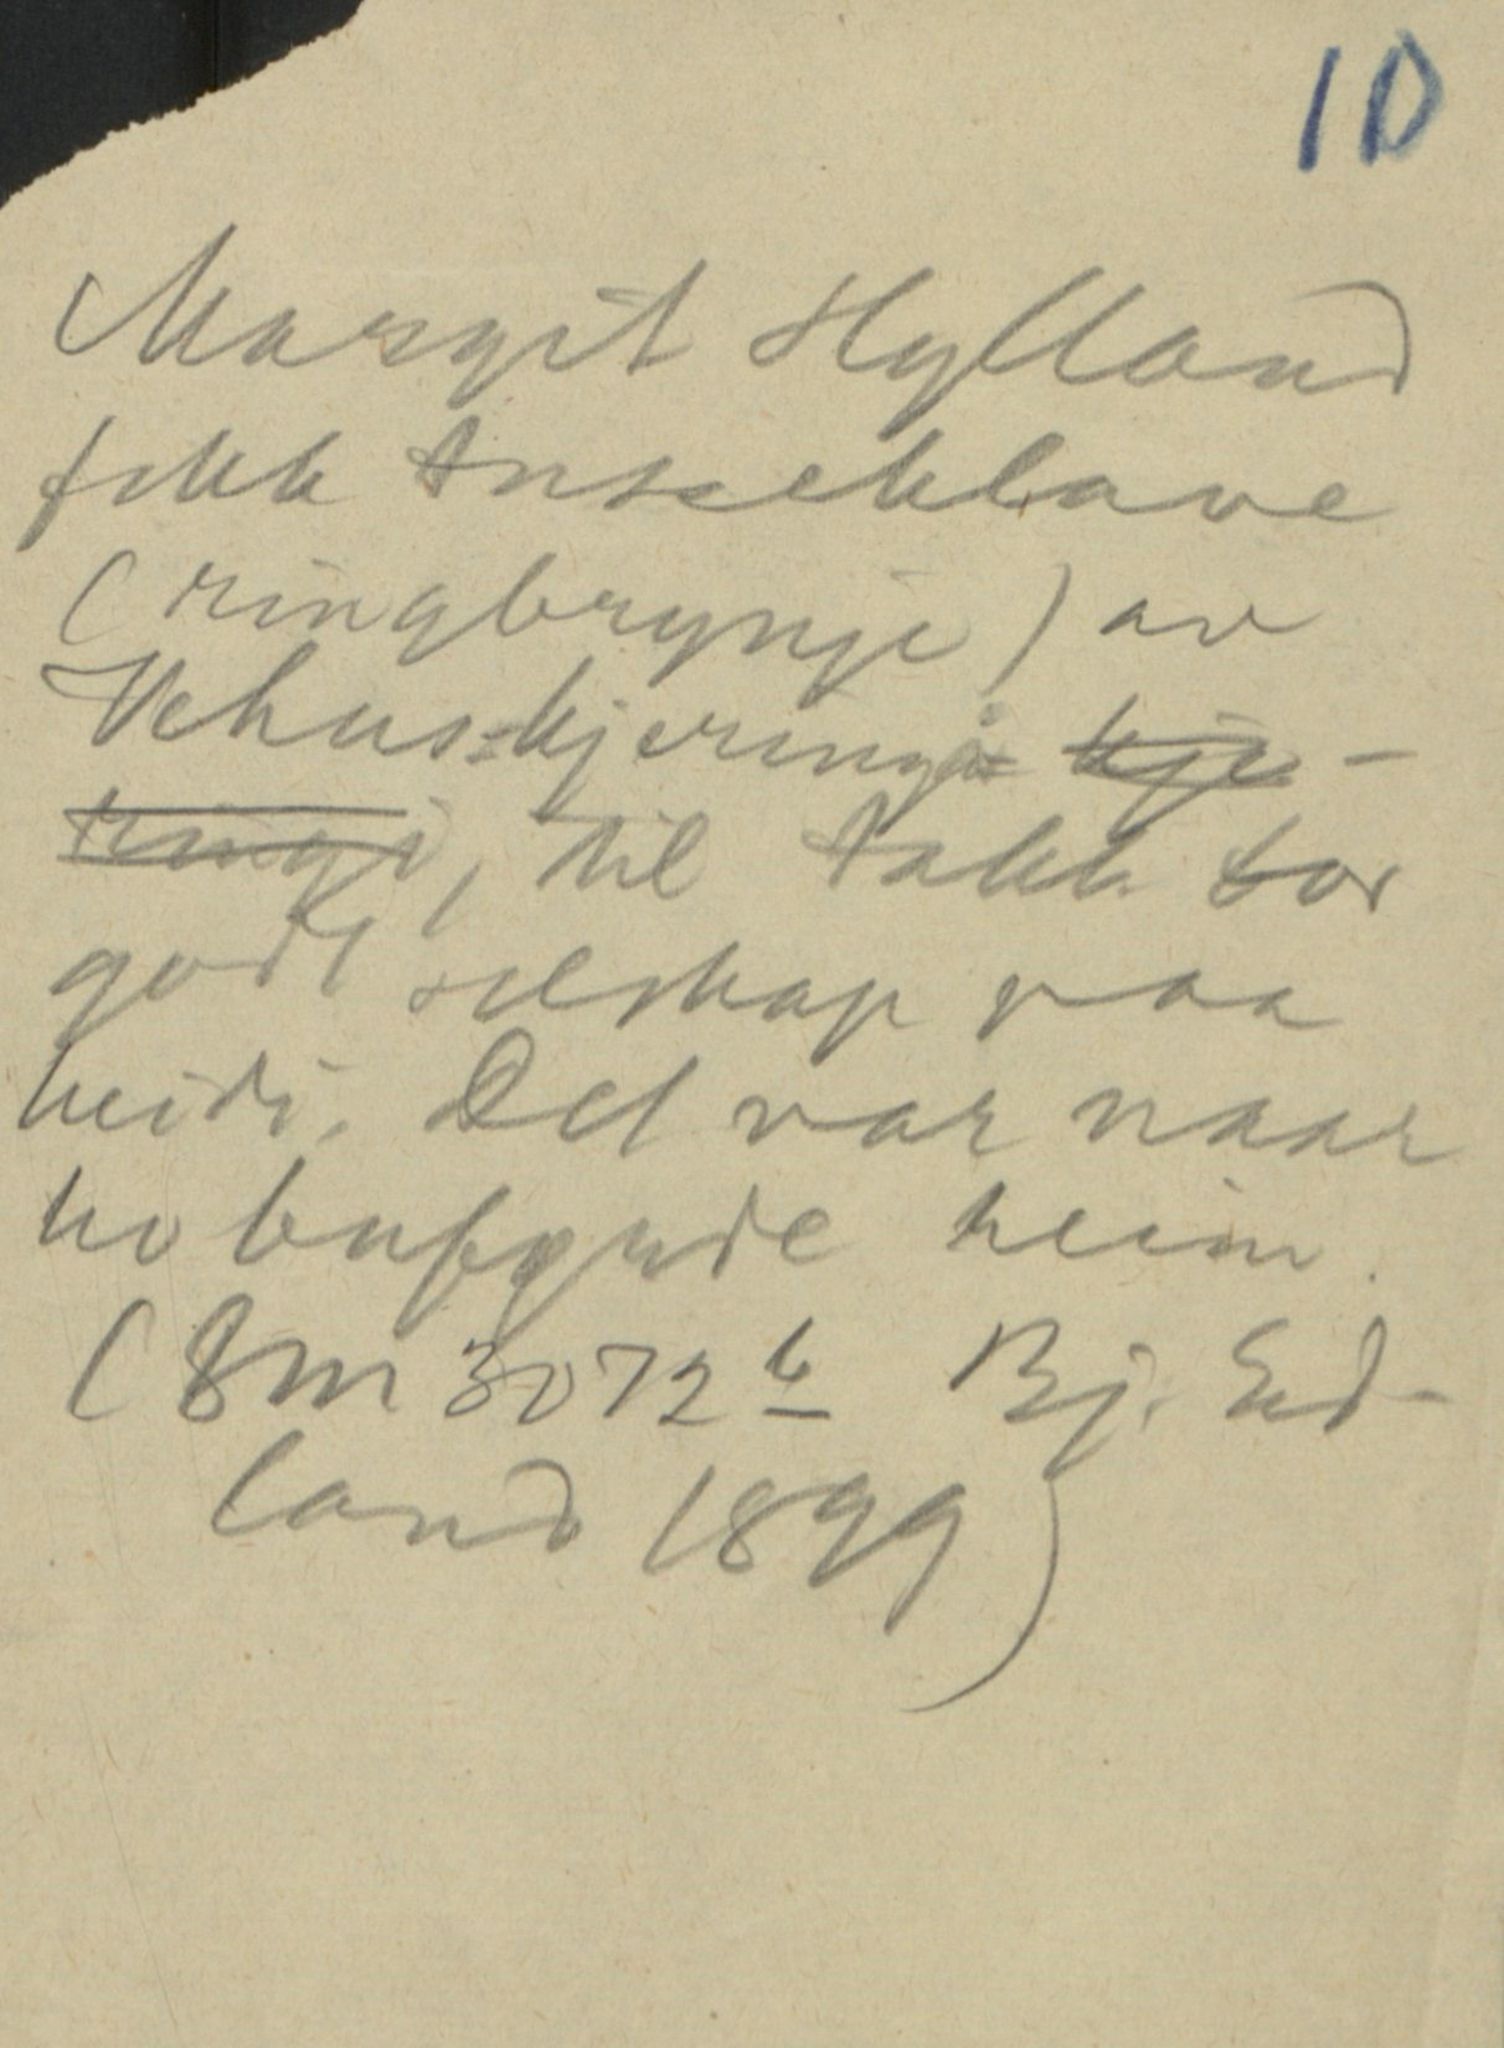 10
Margit Hylland
fekk tusseklave
(ringbrynje) av
Vehus-kjeringi kje-
ringi, til takk for
godt selskap paa
heidi. Det var naar
ho buførde heim.
(8m 3072 b Bj. Ed-
land 1899)